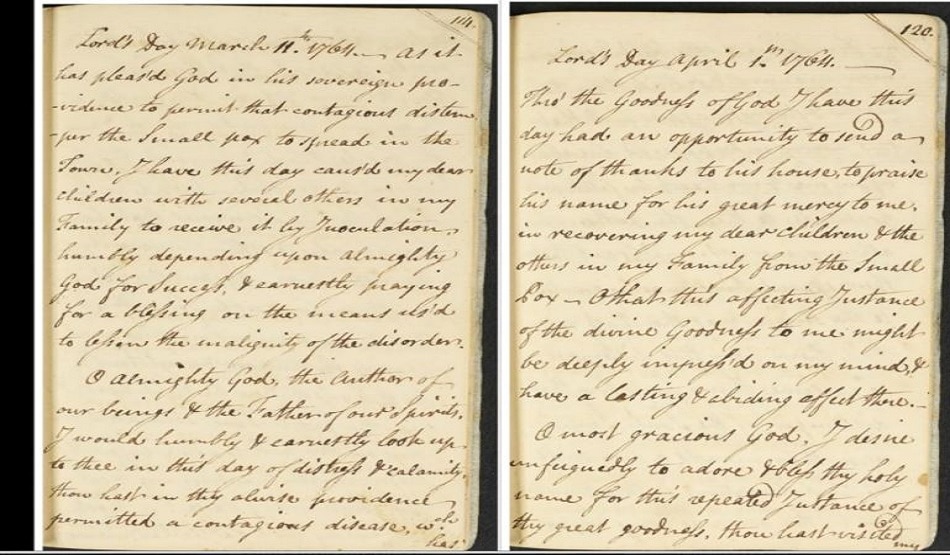 114.
Lord's Day March 11.th 1764. — As it
has pleas'd God in his sovereign pro-
-vidence to permit that contagious distem-
-per the Small pox to spread in the
Town. I have this day caus'd my dear
Children with several others in my
Family to receive it by Inoculation,
humbly depending upon almighty
God for Success, & earnestly praying
for a blessing on the means us'd
to lessen the malignity of the disorder.
O almighty God, the Author of
our beings & the Father of our Spirits,
I would humbly & earnestly look up
to thee in this day of distress & calamity.
thou hast in thy alwise providence
permitted a contagious disease, wch
has
120.
Lord's Day April 1.st 1764. —
Thro' the Goodness of God I have this
day had an opportunity to send a
note of thanks to his house, to praise
his name for his great mercy to me,
in recovering my dear Children & the
others in my Family from the Small
Pox — O that this affecting Instance
of the divine Goodness to me might
be deeply impress'd on my mind, &
have a lasting & abiding affect there. —
O most gracious God, I desire
unfeignedly to adore & bless thy holy
name for this repeated Instance of
thy great goodness, thou hast visited
my